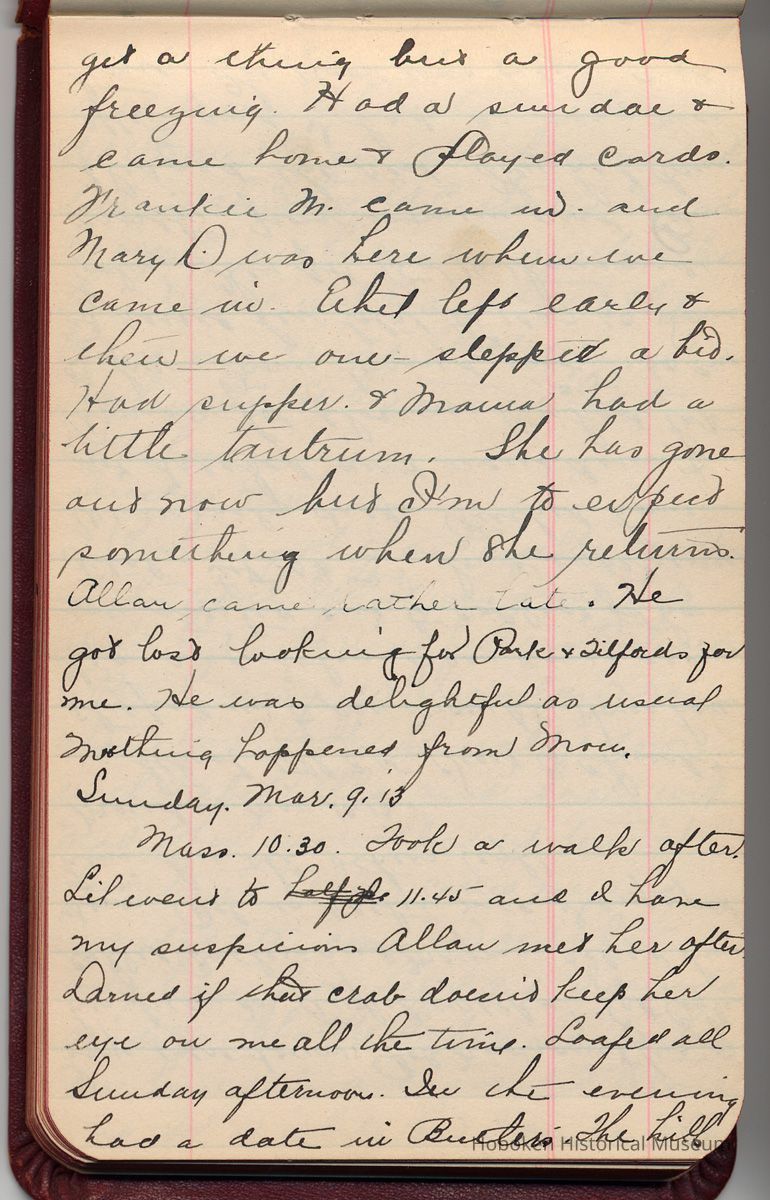 get a thing but a good
freezing. Had a sundae &
came home & played cards.
Frankie M. came in. and
Mary D was here when we
came in. Ethel left early &
then we one-stepped a bit.
Had supper. & Mama had a
little tantrum. She has gone
out now but I'm to expect
something when she returns.
Allan came rather late. He
got lost looking for Park & Tilfords for
me. He was delightful as usual
Nothing happened from Mom.
Sunday. Mar. 9. '13
Mass. 10.30. Took a walk after.
Lil went to 11.45 and I have
my suspicions Allan met her after.
Darned if that crab doesn't keep her
eye on me all the time. Loafed all
Sunday afternoon. In the evening
had a date in Busters. The hill
Hoboken Historical Museum